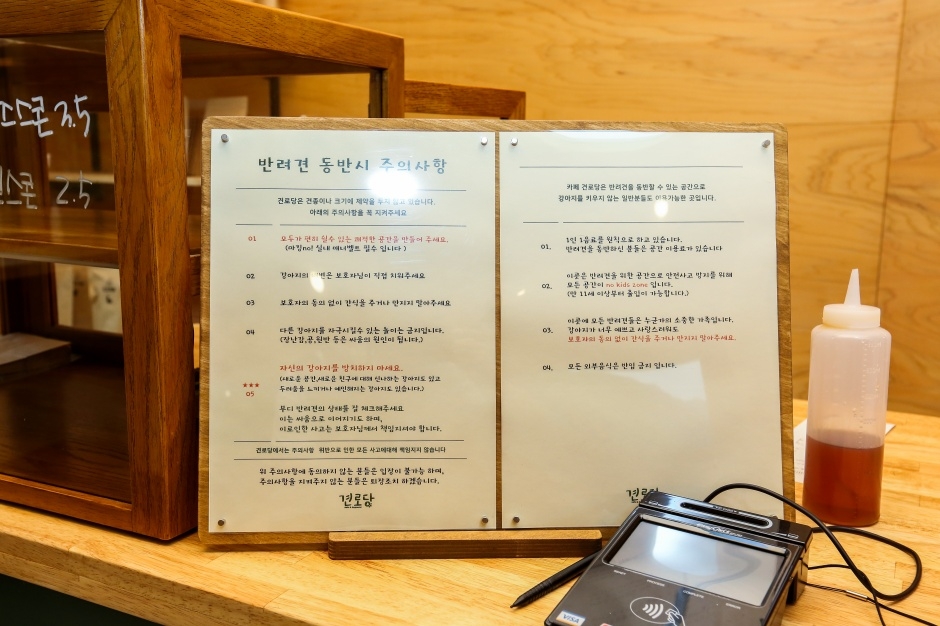 스콘 3.5
스콘 2.5
반려견 동반시 주의사항
견로당은 견종이나 크기에 제약을 두지 않고 있습니다.
아래의 주의사항을 꼭 지켜주세요
01 모두가 편히 쉴수 있는 쾌적한 공간을 만들어 주세요.
(마킹no! 실내 매너벨트 필수 입니다)
02 강아지의 배변은 보호자님이 직접 치워주세요
03 보호자의 동의 없이 간식을 주거나 만지지 말아주세요
04 다른 강아지를 자극시킬수 있는 놀이는 금지입니다.
(장난감,공,원반 등은 싸움의 원인이 됩니다.)
자신의 강아지를 방치하지 마세요.
★★★ (새로운 공간,새로운 친구에 대해 신나하는 강아지도 있고
05 두려움을 느끼거나 예민해지는 강아지도 있습니다.)
부디 반려견의 상태를 잘 체크해주세요
이는 싸움으로 이어지기도 하며,
이로인한 사고는 보호자님께서 책임지셔야 합니다.
견로당에서는 주의사항 위반으로 인한 모든 사고에대해 책임지지 않습니다
위 주의사항에 동의하지 않는 분들은 입장이 불가능 하며,
주의사항을 지켜주지 않는 분들은 퇴장조치 하겠습니다.
견로당
카페 견로당은 반려견을 동반할 수 있는 공간으로
강아지를 키우지 않는 일반분들도 이용가능한 곳입니다.
01. 1인 1음료를 원칙으로 하고 있습니다.
반려견을 동반하신 분들은 공간 이용료가 있습니다
이곳은 반려견을 위한 공간으로 안전사고 방지를 위해
02. 모든 공간이 no kids zone 입니다.
(만 11세 이상부터 출입이 가능합니다.)
이곳에 모든 반려견들은 누군가의 소중한 가족입니다.
03. 강아지가 너무 예쁘고 사랑스러워도
보호자의 동의 없이 간식을 주거나 만지지 말아주세요.
04. 모든 외부음식은 반입 금지 입니다.
견로당
VISA